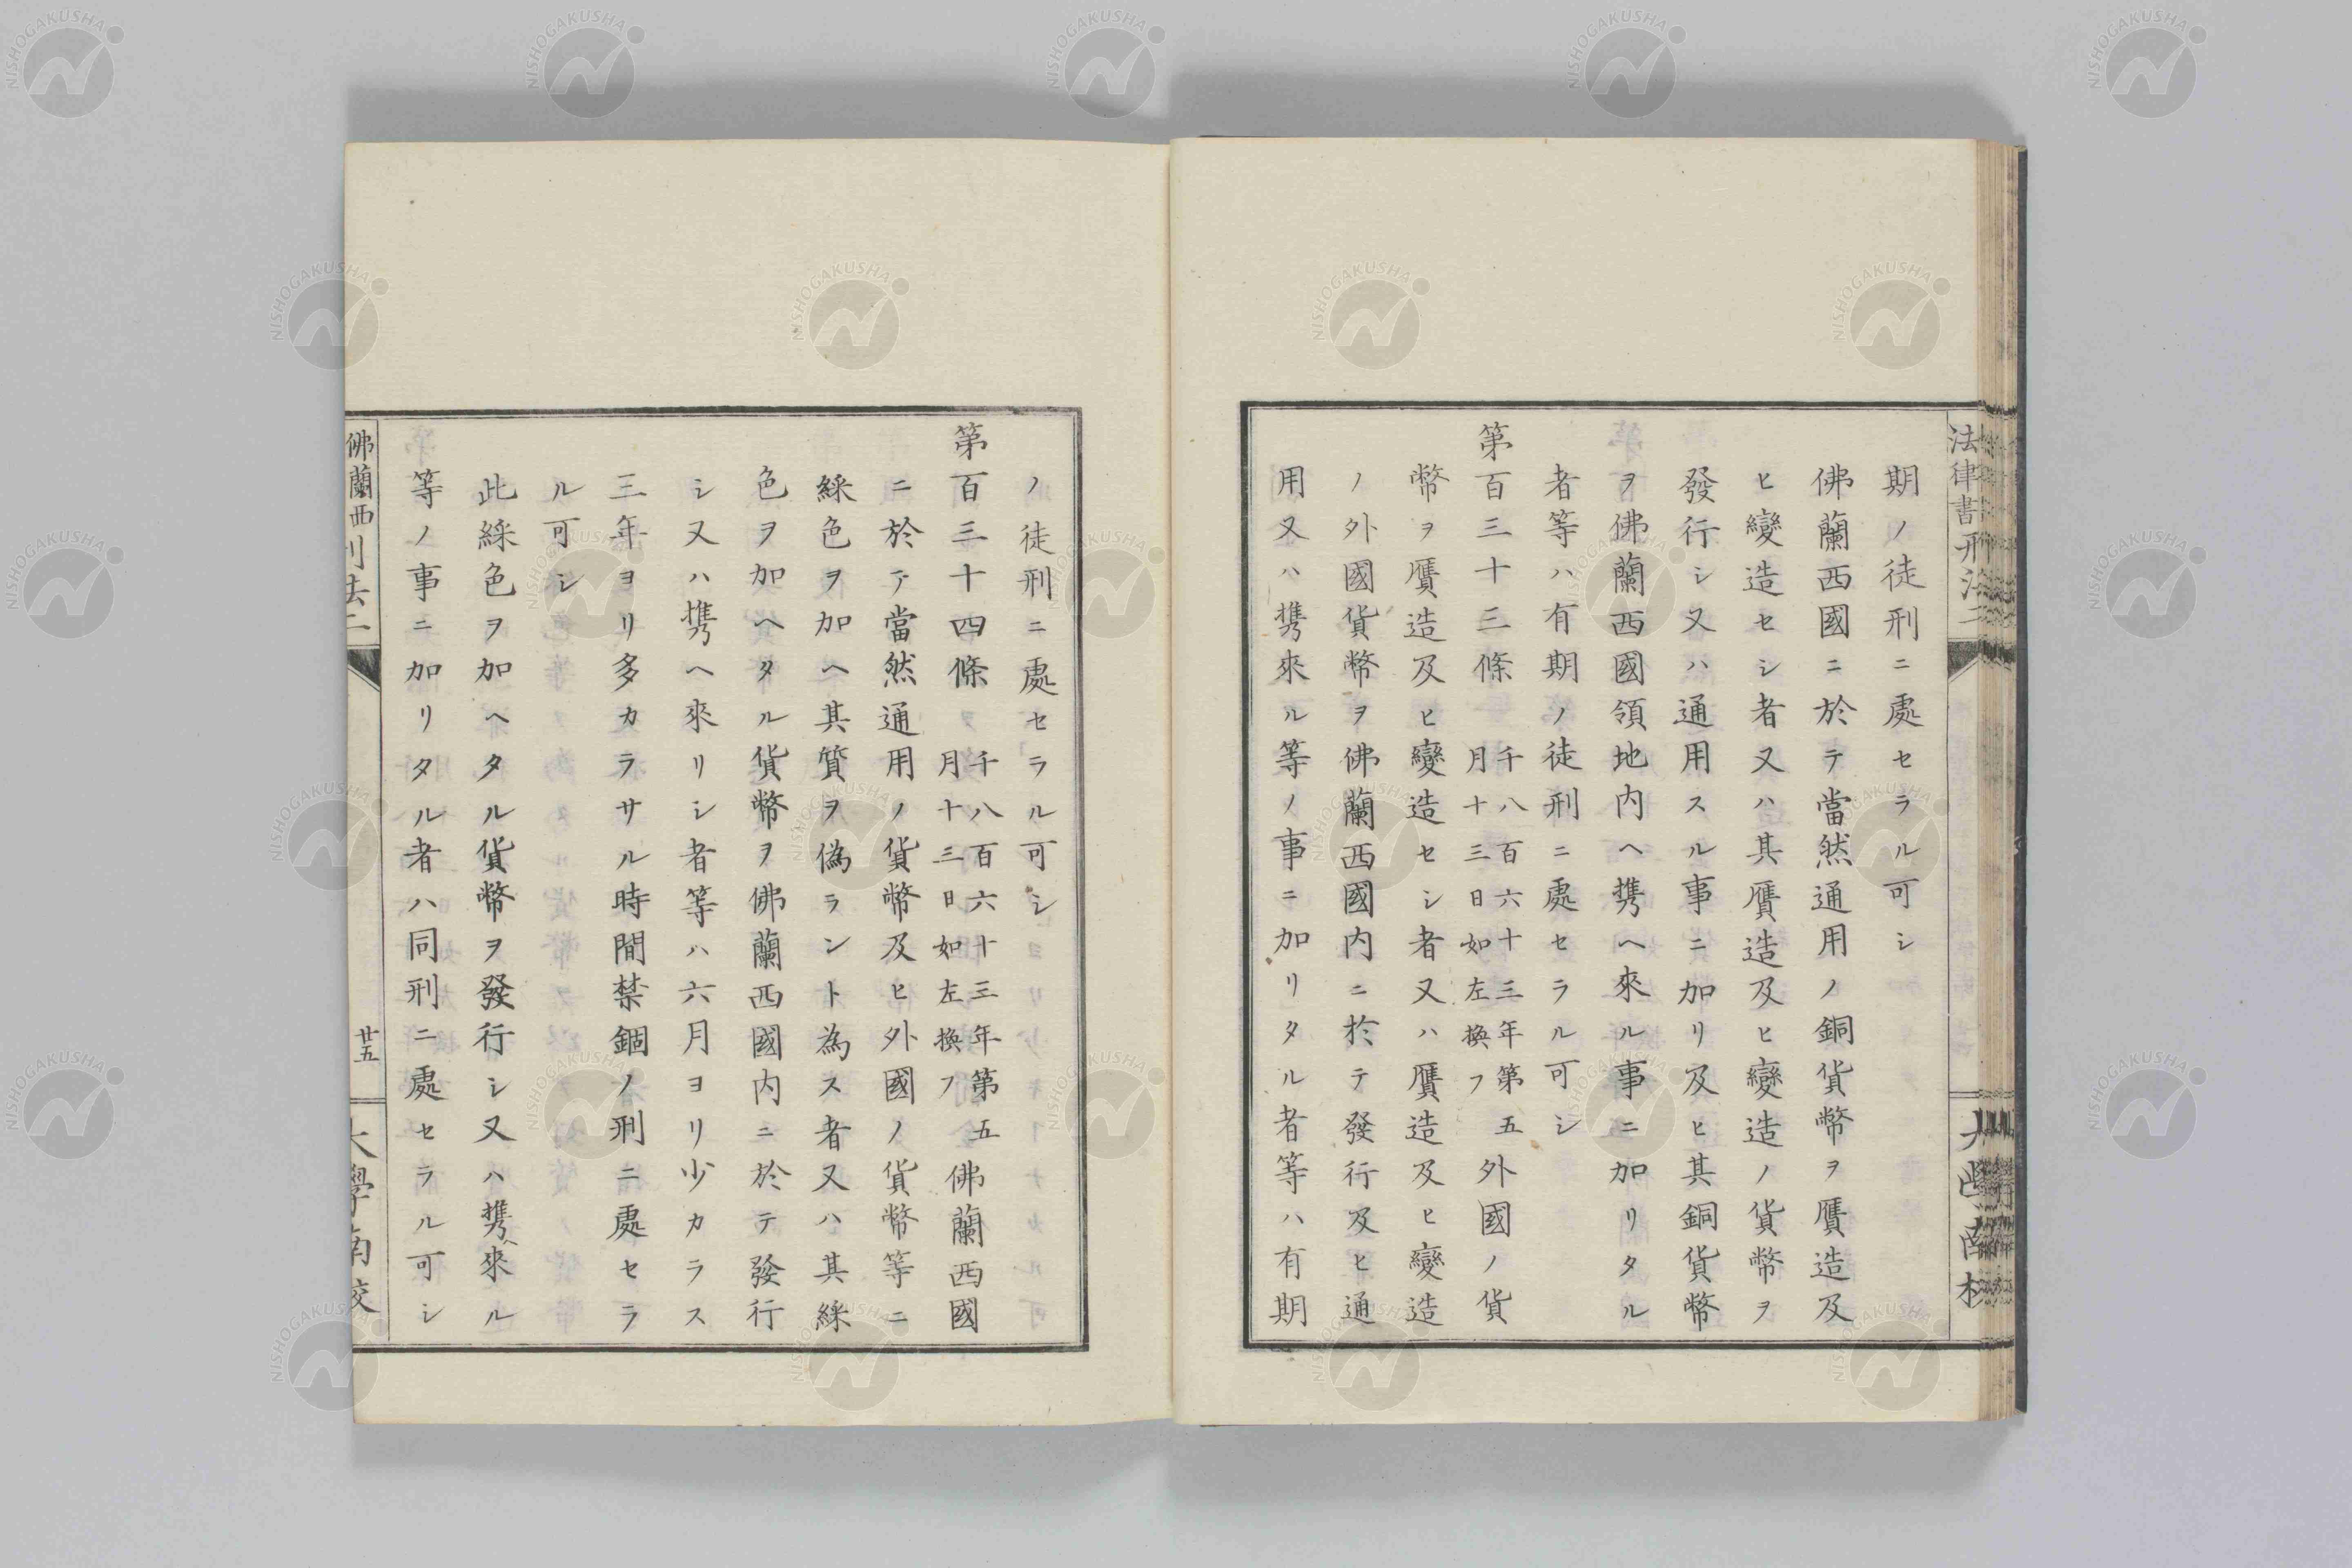 期ノ徒刑ニ處セラル可シ
佛蘭西國ニ於テ當然通用ノ銅貨幣ヲ贋造及
ヒ變造セシ者又ハ其贋造及ヒ變造ノ貨幣ヲ
發行シ又ハ通用スル事ニ加リ及ヒ其銅貨幣
ヲ佛蘭西國領地内ヘ携ヘ來ル事ニ加リタル
者等ハ有期ノ徒刑ニ處セラル可シ
第百三十三條 千八百六十三年第五
月十三日如左換フ 外國ノ貨
幣ヲ贋造及ヒ變造セシ者又ハ贋造及ヒ變造
ノ外國貨幣ヲ佛蘭西國内ニ於テ發行及ヒ通
用又ハ携來ル等ノ事ニ加リタル者等ハ有期
ノ徒刑ニ處セラル可シ
第百三十四條 千八百六十三年第五
月十三日如左換フ 佛蘭西國
ニ於テ當然通用ノ貨幣及ヒ外國ノ貨幣等ニ
綵色ヲ加ヘ其質ヲ偽ラント為ス者又ハ其綵
色ヲ加ヘタル貨幣ヲ佛蘭西國内ニ於テ發行
シ又ハ携ヘ來リシ者等ハ六月ヨリ少カラス
三年ヨリ多カラサル時間禁錮ノ刑ニ處セラ
ル可シ
此綵色ヲ加ヘタル貨幣ヲ發行シ又ハ携ヘ來ル
等ノ事ニ加リタル者ハ同刑ニ處セラル可シ
法律書刑法二
佛蘭西刑法二
廿五
大學南校
NISHOGAKUSHA